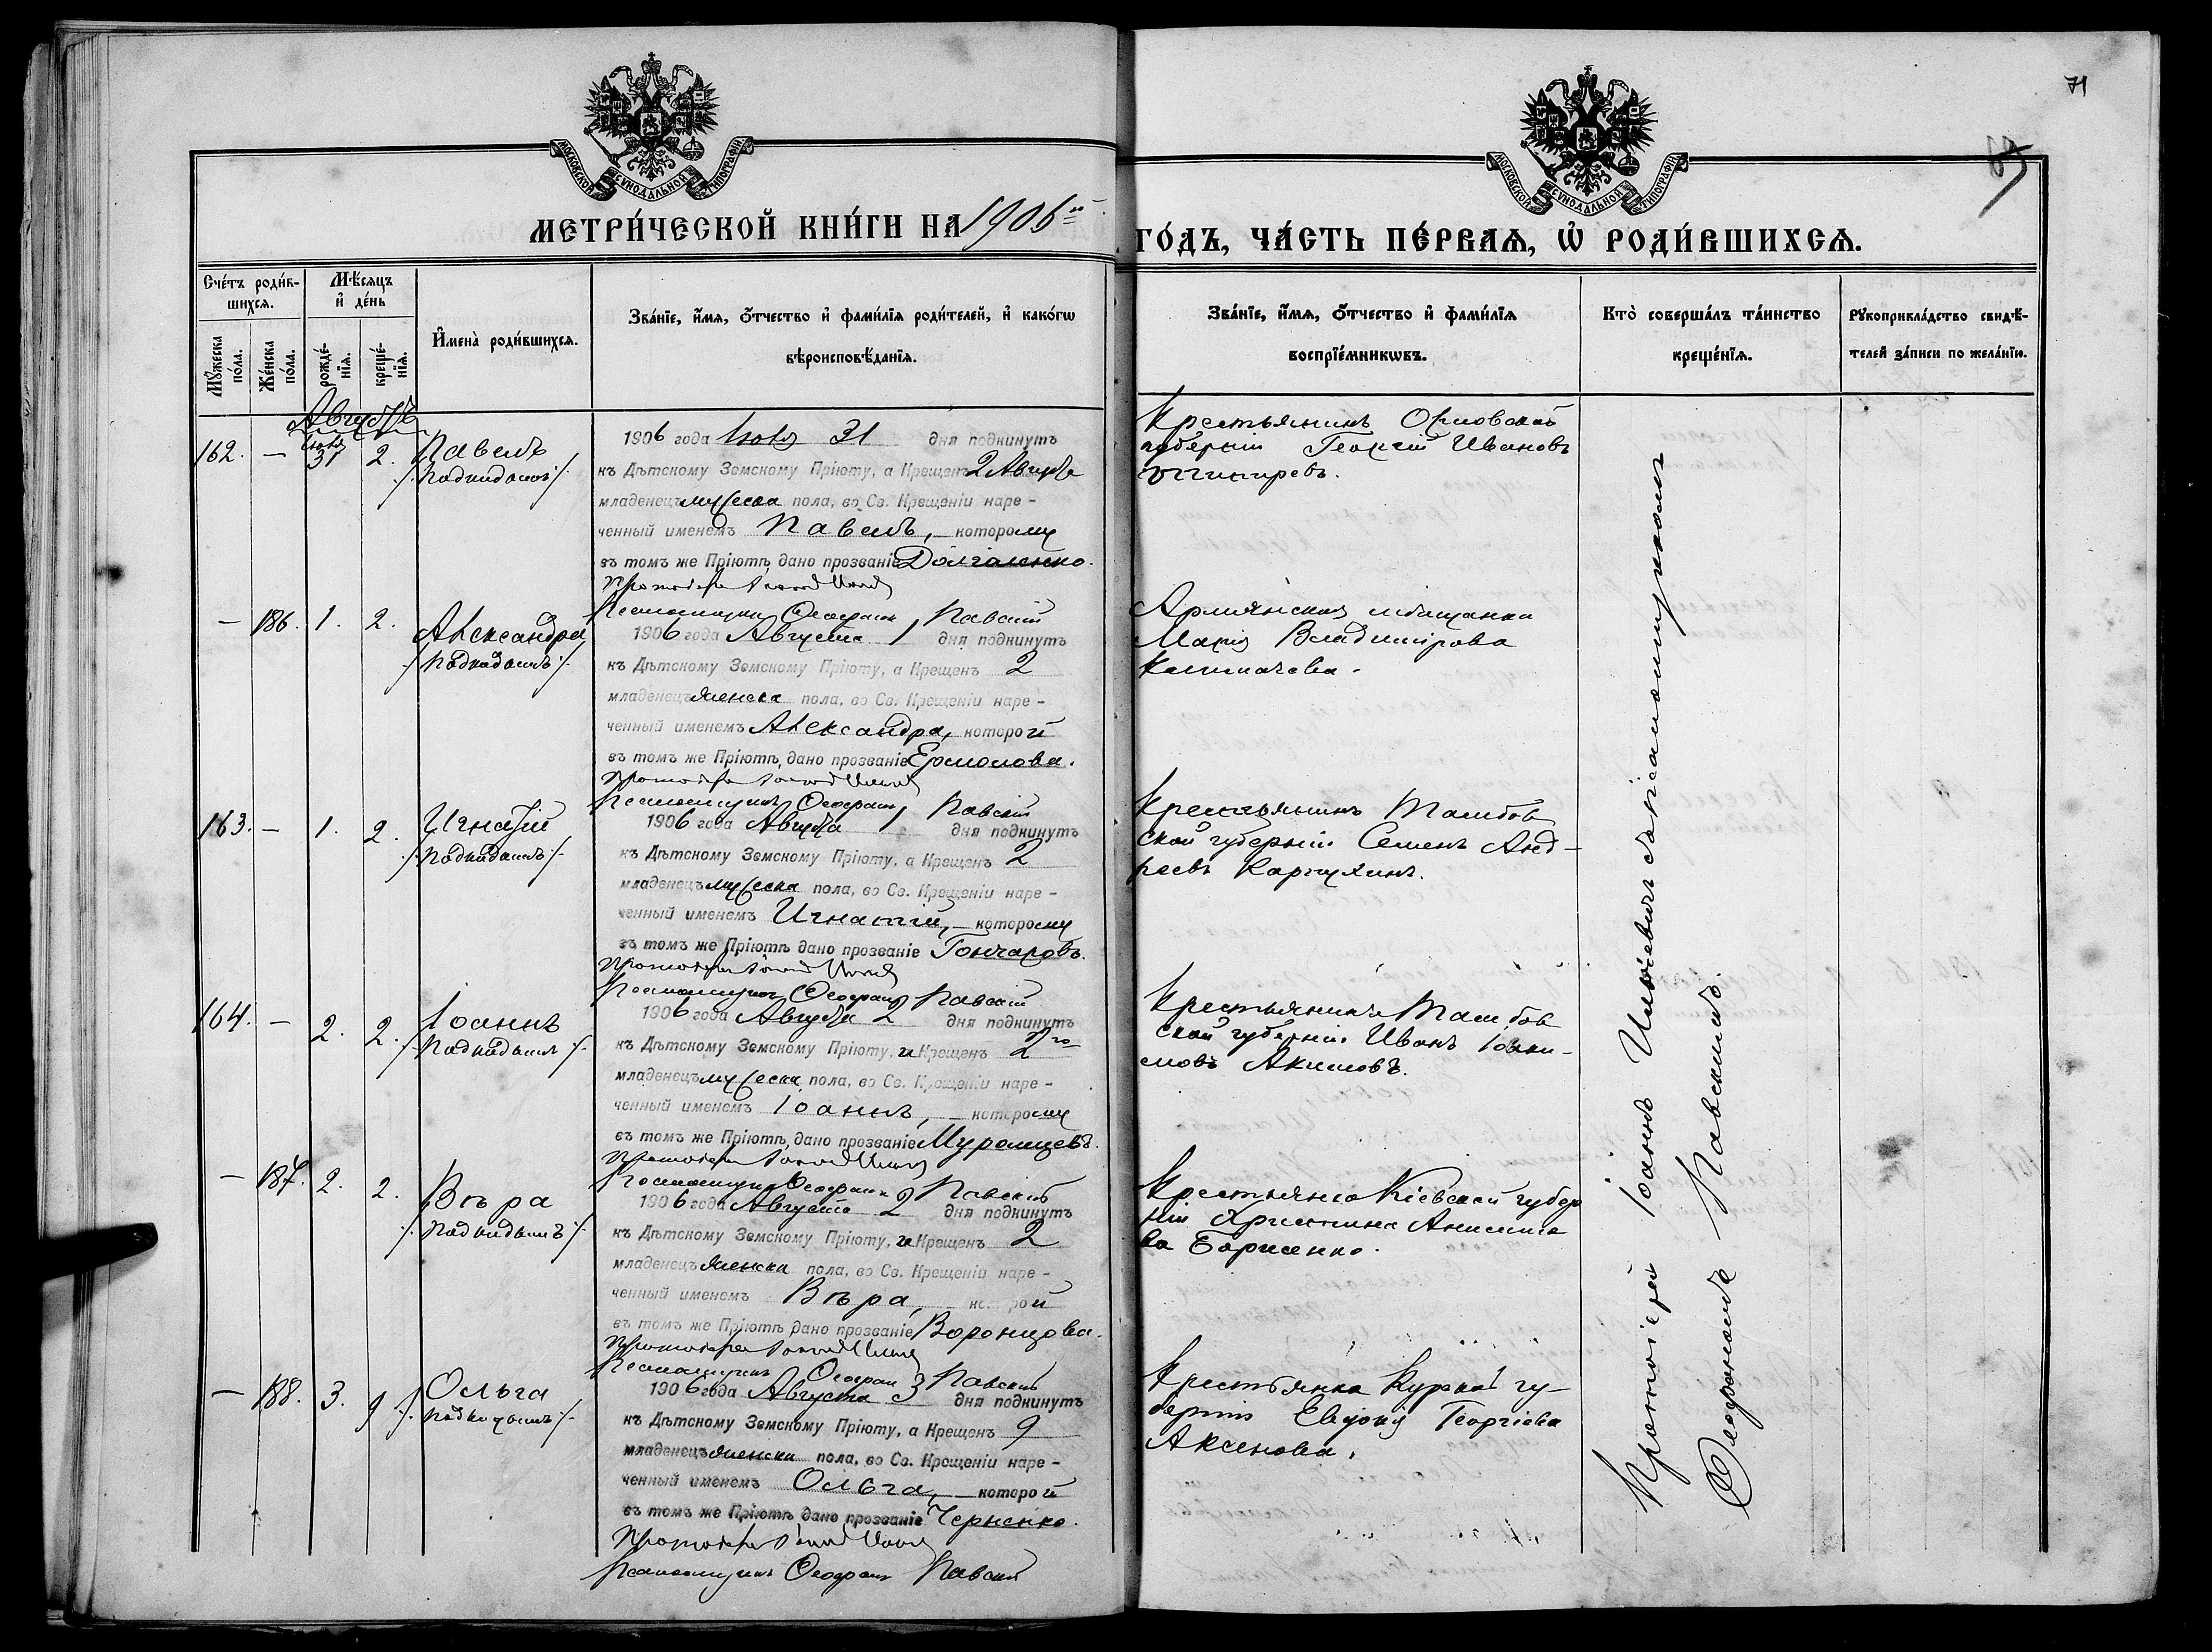 71
МОСКОВСКОЙ СѴНОДАЛЬНОЙ ТИПОГРАФІИ
МОСКОВСКОЙ СѴНОДАЛЬНОЙ ТИПОГРАФІИ
МЕТРИ́ЧЕСКОЙ КНИ́ГИ НА 1906 й
ГО́ДЪ, ЧА́СТЬ ПЕ́РВАѦ, Ѡ҆ РОДИ́ВШИХСѦ.
Сче́тъ роди́вшихсѧ.
Мꙋ́жеска по́ла.
Же́нска по́ла.
Мѣ́сѧцъ и҆ де́нь
рожде́нїѧ.
креще́нїѧ.
И҆мена̀ роди́вшихсѧ.
Зва́нїе, и҆́мѧ, ѻ҆́тчество и҆ фами́лїѧ роди́телей, и҆ како́гѡ
вѣроисповѣ́данїѧ.
Зва́нїе, и҆́мѧ, ѻ҆́тчество и҆ фами́лїѧ
воспрїе́мникѡвъ.
Кто̀ соверша́лъ та́инство
креще́нїѧ.
Рꙋкоприкла́дство свидѣ́-
телей за́писи по жела́нїю.
Августъ
162. — Іюля 31 2. Павелъ
/подкидышъ/
1906 года Іюля 31 дня подкинутъ
къ Дѣтскому Земскому Пріюту, а Крещенъ 2 Августа
младенецъ мужеска пола, во Св. Крещеніи наре-
ченный именемъ Павелъ, — которому
въ томъ же Пріютѣ дано прозваніе Долгаленко.
Псаломщикъ Ѳеофанъ Павскій
Крестьянинъ Орловской
губерніи Георгій Ивановъ
— 186. 1. 2. Александра
/подкидышъ/
1906 года Августа 1 дня подкинутъ
къ Дѣтскому Земскому Пріюту, а Крещенъ 2
младенецъ женска пола, во Св. Крещеніи наре-
ченный именемъ Александра, которой
въ томъ же Пріютѣ, дано прозваніе Ермолова.
Псаломщикъ Ѳеофанъ Павскій
Армянская мѣщанка
Марія Владимірова
163. — 1. 2. Игнатій
/подкидышъ/
1906 года Августа 1 дня подкинутъ
къ Дѣтскому Земскому Пріюту, а Крещенъ 2
младенецъ мужеска пола, во Св. Крещеніи наре-
ченный именемъ Игнатій, — которому
въ томъ же Пріютѣ дано прозваніе Гончаровъ.
Псаломщикъ Ѳеофанъ Павскій
Крестьянинъ Тамбов
ской губерніи Семенъ Анд-
реевъ Каргухинъ.
164. — 2. 2. Іоаннъ
/подкидышъ/
1906 года Августа 2 дня подкинутъ
къ Дѣтскому Земскому Пріюту, и Крещенъ 2го
младенецъ мужеска пола, во Св. Крещеніи наре-
ченный именемъ Іоаннъ, — которому
въ томъ же Пріютѣ, дано прозваніе Муромцевъ.
Псаломщикъ Ѳеофанъ Павскій
Крестьянинъ Тамбов
ской губерніи Иванъ Іоаки-
мовъ Акимовъ.
— 187. 2. 2. Вѣра
/подкидышъ/
1906 года Августа 2 дня подкинутъ
къ Дѣтскому Земскому Пріюту, и Крещенъ 2
младенецъ женска пола, во Св. Крещеніи наре-
ченный именемъ Вѣра, которой
въ томъ же Пріютѣ дано прозваніе Воронцова.
Псаломщикъ Ѳеофанъ Павскій
Крестьянка Кіевской губер
ніи Христина Анисимо
ва Борисенко.
— 188. 3. 9 Ольга
/подкидышъ/
1906 года Августа 3 дня подкинутъ
къ Дѣтскому Земскому Пріюту, а Крещенъ 9
младенецъ женска пола, во Св. Крещеніи наре-
ченный именемъ Ольга, — которой
въ томъ же Пріютѣ дано прозваніе Черненко.
Псаломщикъ Ѳеофанъ Павскій
Крестьянка Курской гу-
берніи Евдокія Георгіева
Аксенова.
Протоіерей Іоаннъ Ильіевичъ съ псаломщикомъ
Ѳеофаномъ Павскимъ.